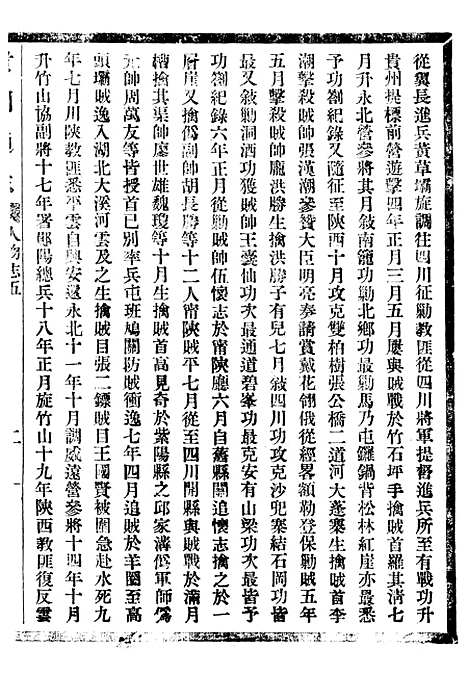 從襄長進兵黃草壩旋調往四川征勦教匪從四川將軍提督進兵所至有戰功升
貴州提標前營遊擊四年正月三月五月屢與賊戰於竹石坪手擒賊首羅其清七
月升永北營參將其月敍南籠功勦北鄉功最勦馬乃屯鑼鍋背松林紅崖亦最悉
予功劄紀錄又隨征至陝西十月攻克雙柏樹張公橋二道河大蓬寨生擒賊首李
潮擊殺賊帥張漢潮參贊大臣明亮奉請賞戴花翎俄從經畧額勒登保勦賊五年
五月擊殺賊帥龐洪勝生擒洪勝子有兒七月敍四川功攻克沙兜寨結石岡功皆
最又敍勦洞洒功獲賊帥王囊仙功次最通道碧峯功最克安有山梁功次最皆予
功劄紀錄六年正月從勦賊帥伍懷志於甯陝廳六月自舊縣關追懷志擒之於一
層崖又擒僞副帥胡長勝等十二人甯陝賊平七月從至四川開縣與賊戰於滿月
槽擒其渠帥廖世雄魏瓊等十月生擒賊首高見奇於紫陽縣之邱家溝僞軍師僞
元帥周萬友等皆授首已別率兵屯班鳩關防賊衝逸七年四月追賊於羊圈至高
頭壩賊逸入湖北大溪河雲及之生擒賊目張二鏢賊目王國賢被圍急赴水死九
年七月川陝教匪悉平雲自興安還永北十一年十月調威遠營參將十四年十月
升竹山協副將十七年署鄖陽總兵十八年正月旋竹山十九年陝西教匪復反雲
人物志五
二